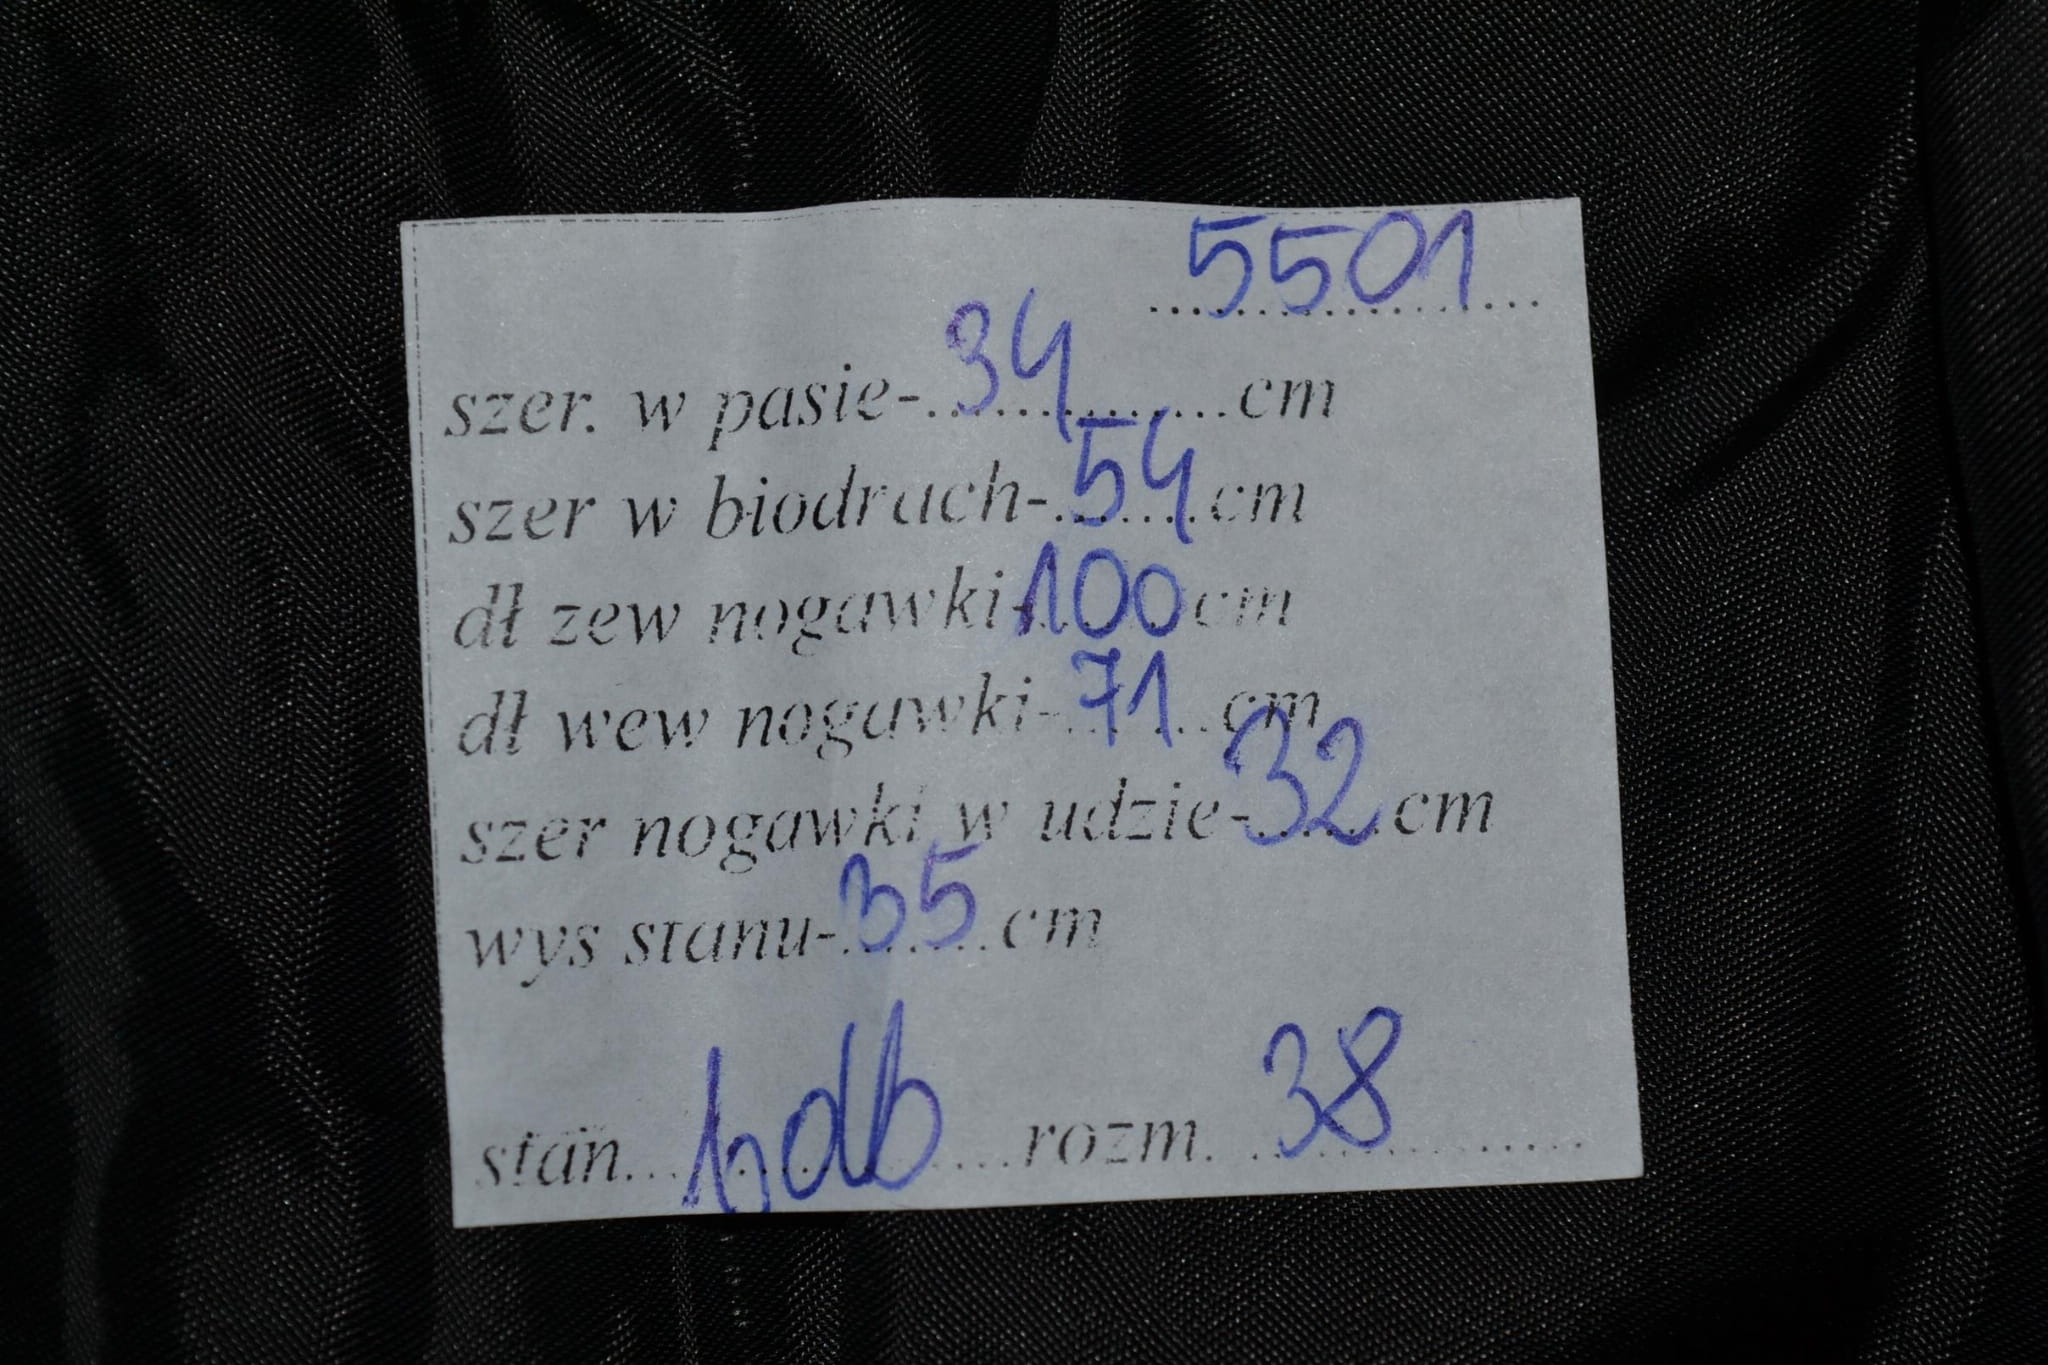 5501
szer. w pasie-34cm
szer w biodrach-54cm
dł zew nogawki-100cm
dł wew nogawki-71cm
szer nogawki w udzie-32cm
wys stanu-35cm
stan...bdb...rozm. 38